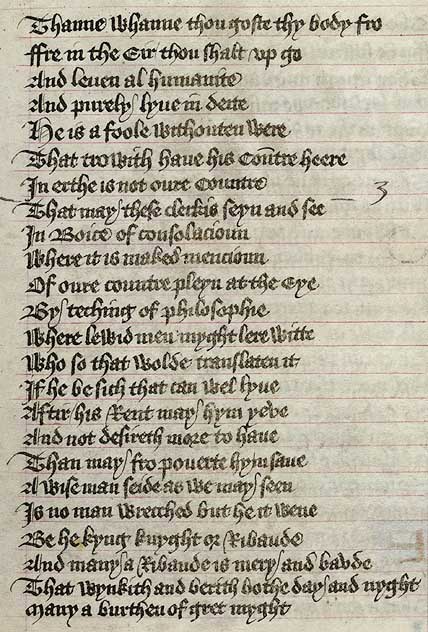 Thanne whanne thou goste thy body fro
ffre in the Eir thou shalt vp go
And leuen al humanite
And purely lyue in deite
He is a foole withouten were
That trowith haue his Coũtre heere
In erthe is not oure Countre
That may these clerkis seyn and see 3
In Boice of consolacioun
Where it is maked mencioun
Of oure countre pleyn at the Eye
By teching of philosophie
Where lewid men myght lere witte
Who so that wolde translaten it
If he be sich that can wel lyue
Aftir his Rent may hym yeve
And not desireth more to haue
Than may fro pouerte hym saue
A wise man seide as we may seen
Is no man wrecched but he it wene
Be he kyng knyght or Ribaude
And many a Ribaude is mery and bavde
That wynkith and berith bothe day and nyght
Many a burthen of gret myght